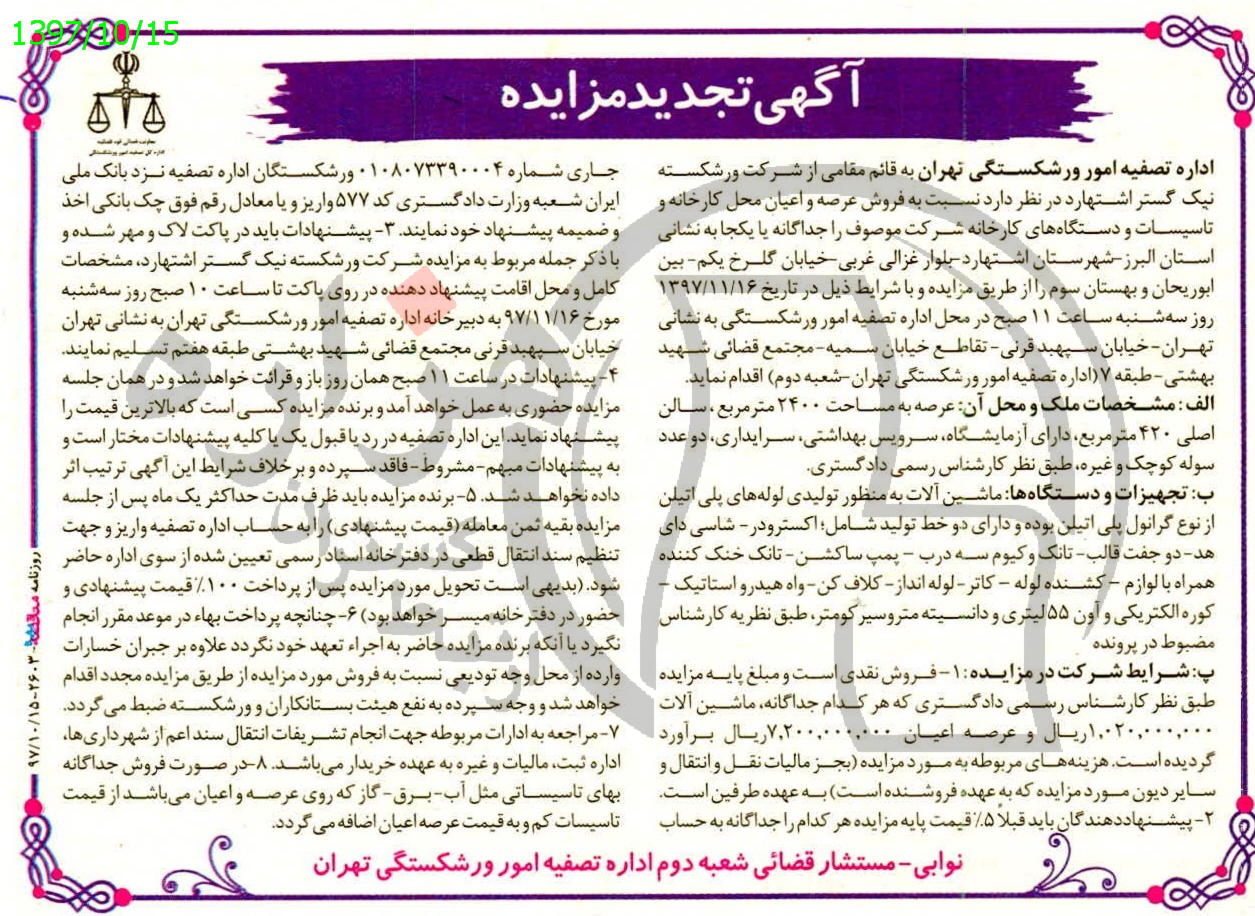 1397/10/15
آگهی تجدید مزایده
معاونت قضائی قوه قضائیه
اداره کل تصفیه امور ورشکستگی
اداره تصفیه امور ورشکستگی تهران به قائم مقامی از شرکت ورشکسته
نیک گستر اشتهارد در نظر دارد نسبت به فروش عرصه و اعیان محل کارخانه و
تاسیسات و دستگاه‌های کارخانه شرکت موصوف را جداگانه یا یکجا به نشانی
استان البرز-شهرستان اشتهارد-بلوار غزالی غربی-خیابان گلرخ یکم-بین
ابوریحان و بهستان سوم را از طریق مزایده و با شرایط ذیل در تاریخ ۱۳۹۷/۱۱/۱۶
روز سه‌شنبه ساعت ۱۱ صبح در محل اداره تصفیه امور ورشکستگی به نشانی
تهران-خیابان سپهبد قرنی- تقاطع خیابان سمیه-مجتمع قضائی شهید
بهشتی-طبقه ۷ (اداره تصفیه امور ورشکستگی تهران-شعبه دوم) اقدام نماید.
الف: مشخصات ملک و محل آن: عرصه به مساحت ۲۴۰۰ متر مربع، سالن
اصلی ۴۲۰ متر مربع، دارای آزمایشگاه، سرویس بهداشتی، سرایداری، دو عدد
سوله کوچک و غیره، طبق نظر کارشناس رسمی دادگستری.
ب: تجهیزات و دستگاه‌ها: ماشین آلات به منظور تولیدی لوله‌های پلی اتیلن
از نوع گرانول پلی اتیلن بوده و دارای دو خط تولید شامل؛ اکسترودر- شاسی دای
هد-دو جفت قالب- تانک وکیوم سه درب - پمپ ساکشن- تانک خنک کننده
همراه با لوازم - کشنده لوله - کاتر-لوله انداز-کلاف کن-واه هیدرو استاتیک -
کوره الکتریکی و آون ۵۵ لیتری و دانسیته متروسیر کومتر، طبق نظریه کارشناس
مضبوط در پرونده
پ: شرایط شرکت در مزایده: ۱-فروش نقدی است و مبلغ پایه مزایده
طبق نظر کارشناس رسمی دادگستری که هر کدام جداگانه، ماشین آلات
۱,۰۲۰,۰۰۰,۰۰۰ریال و عرصه اعیان ۷,۲۰۰,۰۰۰,۰۰۰ریال برآورد
گردیده است. هزینه‌های مربوطه به مورد مزایده (بجز مالیات نقل و انتقال و
سایر دیون مورد مزایده که به عهده فروشنده است) به عهده طرفین است.
۲-پیشنهاددهندگان باید قبلاً ۵٪ قیمت پایه مزایده هر کدام را جداگانه به حساب
جاری شماره ۰۱۰۸۰۷۳۳۹۰۰۰۴ ورشکستگان اداره تصفیه نزد بانک ملی
ایران شعبه وزارت دادگستری کد ۵۷۷ واریز و یا معادل رقم فوق چک بانکی اخذ
و ضمیمه پیشنهاد خود نمایند. ۳-پیشنهادات باید در پاکت لاک و مهر شده و
با ذکر جمله مربوط به مزایده شرکت ورشکسته نیک گستر اشتهارد، مشخصات
کامل و محل اقامت پیشنهاد دهنده در روی پاکت تا ساعت ۱۰ صبح روز سه‌شنبه
مورخ ۹۷/۱۱/۱۶ به دبیرخانه اداره تصفیه امور ورشکستگی تهران به نشانی تهران
خیابان سپهبد قرنی مجتمع قضائی شهید بهشتی طبقه هفتم تسلیم نمایند.
۴-پیشنهادات در ساعت ۱۱ صبح همان روز باز و قرائت خواهد شد و در همان جلسه
مزایده حضوری به عمل خواهد آمد و برنده مزایده کسی است که بالاترین قیمت را
پیشنهاد نماید. این اداره تصفیه در رد یا قبول یک یا کلیه پیشنهادات مختار است و
به پیشنهادات مبهم-مشروط-فاقد سپرده و برخلاف شرایط این آگهی ترتیب اثر
داده نخواهد شد. ۵-برنده مزایده باید ظرف مدت حداکثر یک ماه پس از جلسه
مزایده بقیه ثمن معامله (قیمت پیشنهادی) را به حساب اداره تصفیه واریز و جهت
تنظیم سند انتقال قطعی در دفترخانه اسناد رسمی تعیین شده از سوی اداره حاضر
شود. (بدیهی است تحویل مورد مزایده پس از پرداخت ۱۰۰٪ قیمت پیشنهادی و
حضور در دفترخانه میسر خواهد بود) ۶-چنانچه پرداخت بهاء در موعد مقرر انجام
نگیرد یا آنکه برنده مزایده حاضر به اجراء تعهد خود نگردد علاوه بر جبران خسارات
وارده از محل وجه تودیعی نسبت به فروش مورد مزایده از طریق مزایده مجدد اقدام
خواهد شد و وجه سپرده به نفع هیئت بستانکاران و ورشکسته ضبط می گردد.
۷-مراجعه به ادارات مربوطه جهت انجام تشریفات انتقال سند اعم از شهرداری‌ها،
اداره ثبت، مالیات و غیره به عهده خریدار می‌باشد. ۸-در صورت فروش جداگانه
بهای تاسیساتی مثل آب-برق-گاز که روی عرصه و اعیان می‌باشد از قیمت
تاسیسات کم و به قیمت عرصه اعیان اضافه می گردد.
نوابی-مستشار قضائی شعبه دوم اداره تصفیه امور ورشکستگی تهران
۹۷/۱۰/۱۵-۲۶۰۳- روزنامه